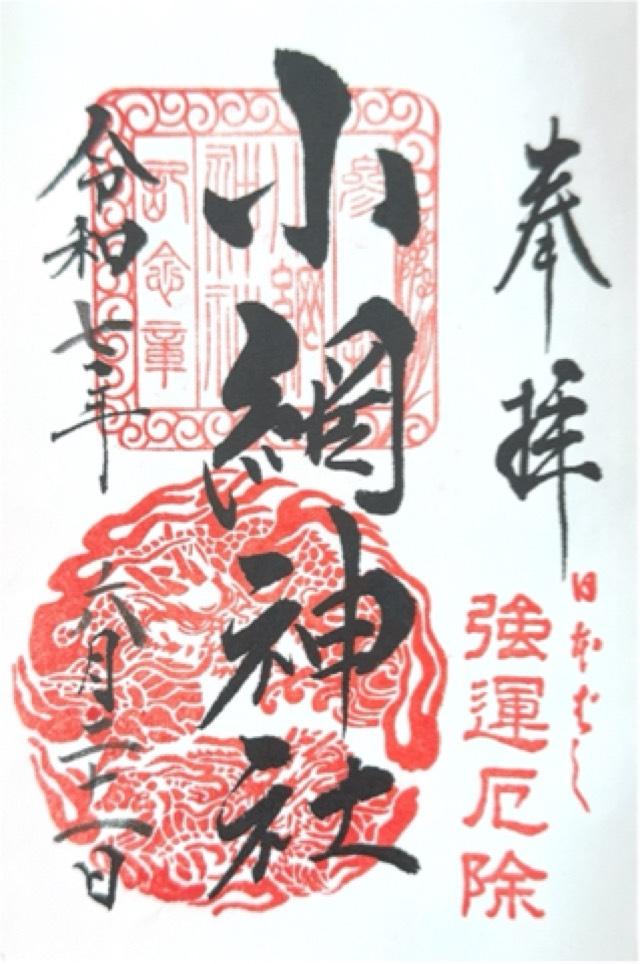 奉拝
日本ばし
強運厄除
小網神社
令和七年
六月二十一日
小網
神社
記念章